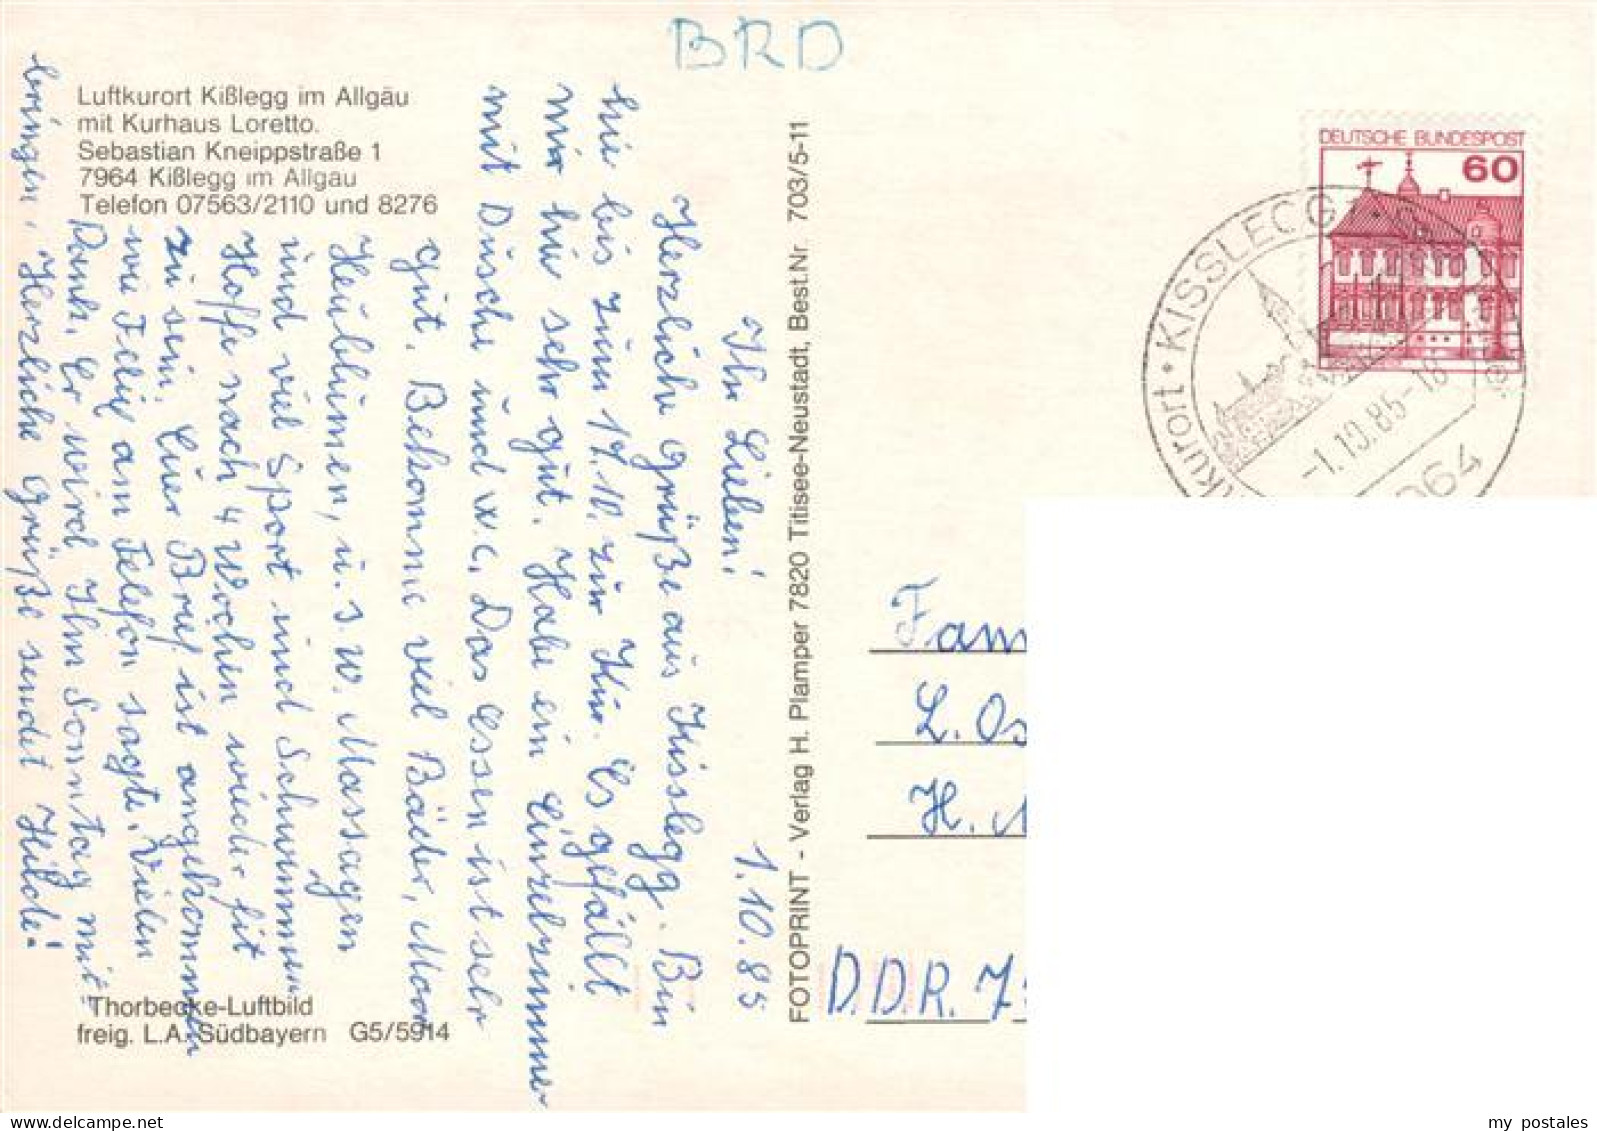 BRD
Luftkurort Kißlegg im Allgäu
mit Kurhaus Loretto.
Sebastian Kneippstraße 1
7964 Kißlegg im Allgäu
Telefon 07563/2110 und 8276
1.10.85
Ihr Lieben!
Herzliche Grüße aus Kisslegg. Bin
hie bis zum 17.10. zur Kur. Es gefällt
mir hie sehr gut. Habe ein Einzelzimmer
mit Dusche und w.c. Das Essen ist sehr
gut. Bekomme viel Bäder, Moor
Heublumen, u.s.w. Massagen
und viel Sport und Schwimmen
Hoffe nach 4 Wochen wieder fit
zu sein. Euer Brief ist angekommen
wie Felix am Telefon sagte. Vielen
Dank. Er wird Ihm Sonntag mit-
bringen, Herzliche Grüße sendet Hilde!
Thorbecke-Luftbild
freig. L.A. Südbayern G5/5914
FOTOPRINT - Verlag H. Plamper 7820 Titisee-Neustadt, Best.Nr. 703/5-11
DEUTSCHE BUNDESPOST
60
KISSLEGG
-1.10.85-18
7964
Luftkurort
Fam
L. Os
H.
D.D.R. 7
my postales